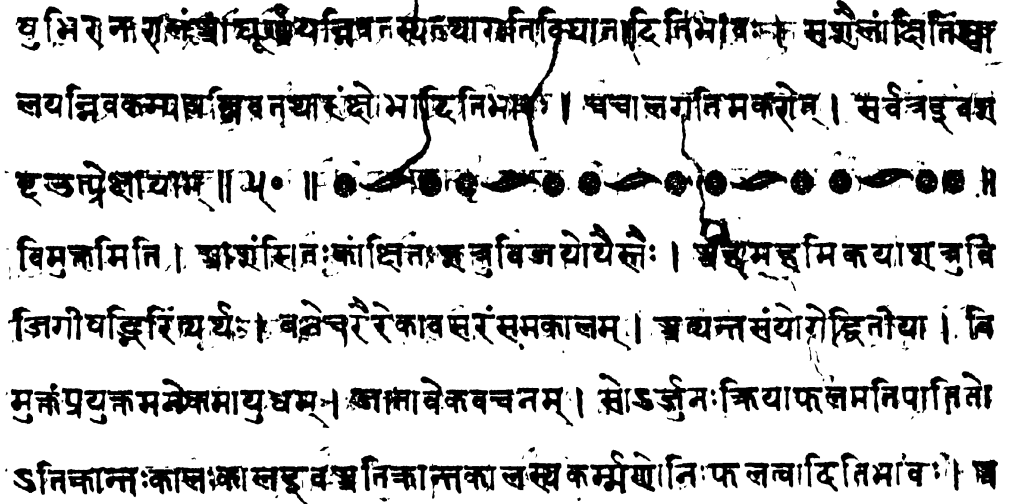 लयन्निवकम्पयन्निवतथासंक्षोभादितिभावः । चचालगतिमकरोत् । सर्वत्रइवश
ब्दउत्प्रेक्षायाम् ॥ ५० ॥ ॥
विमुक्तमिति । आशंसितःकांक्षितःशत्रुविजयोयैस्तैः । अहमहमिकयाशत्रुवि
जिगीषद्भिरित्यर्थः । वनेचरैरेकावसरंसमकालम् । अत्यन्तसंयोगेद्वितीया । वि
मुक्तंप्रयुक्तमनेकमायुधम् । जातावेकवचनम् । सोऽर्ज्जुनःक्रियाफलमतिपातितो
ऽतिक्रान्तःकालःकालइवअतिक्रान्तकालस्यकर्म्मणोनिःफलत्वादितिभावः । अ